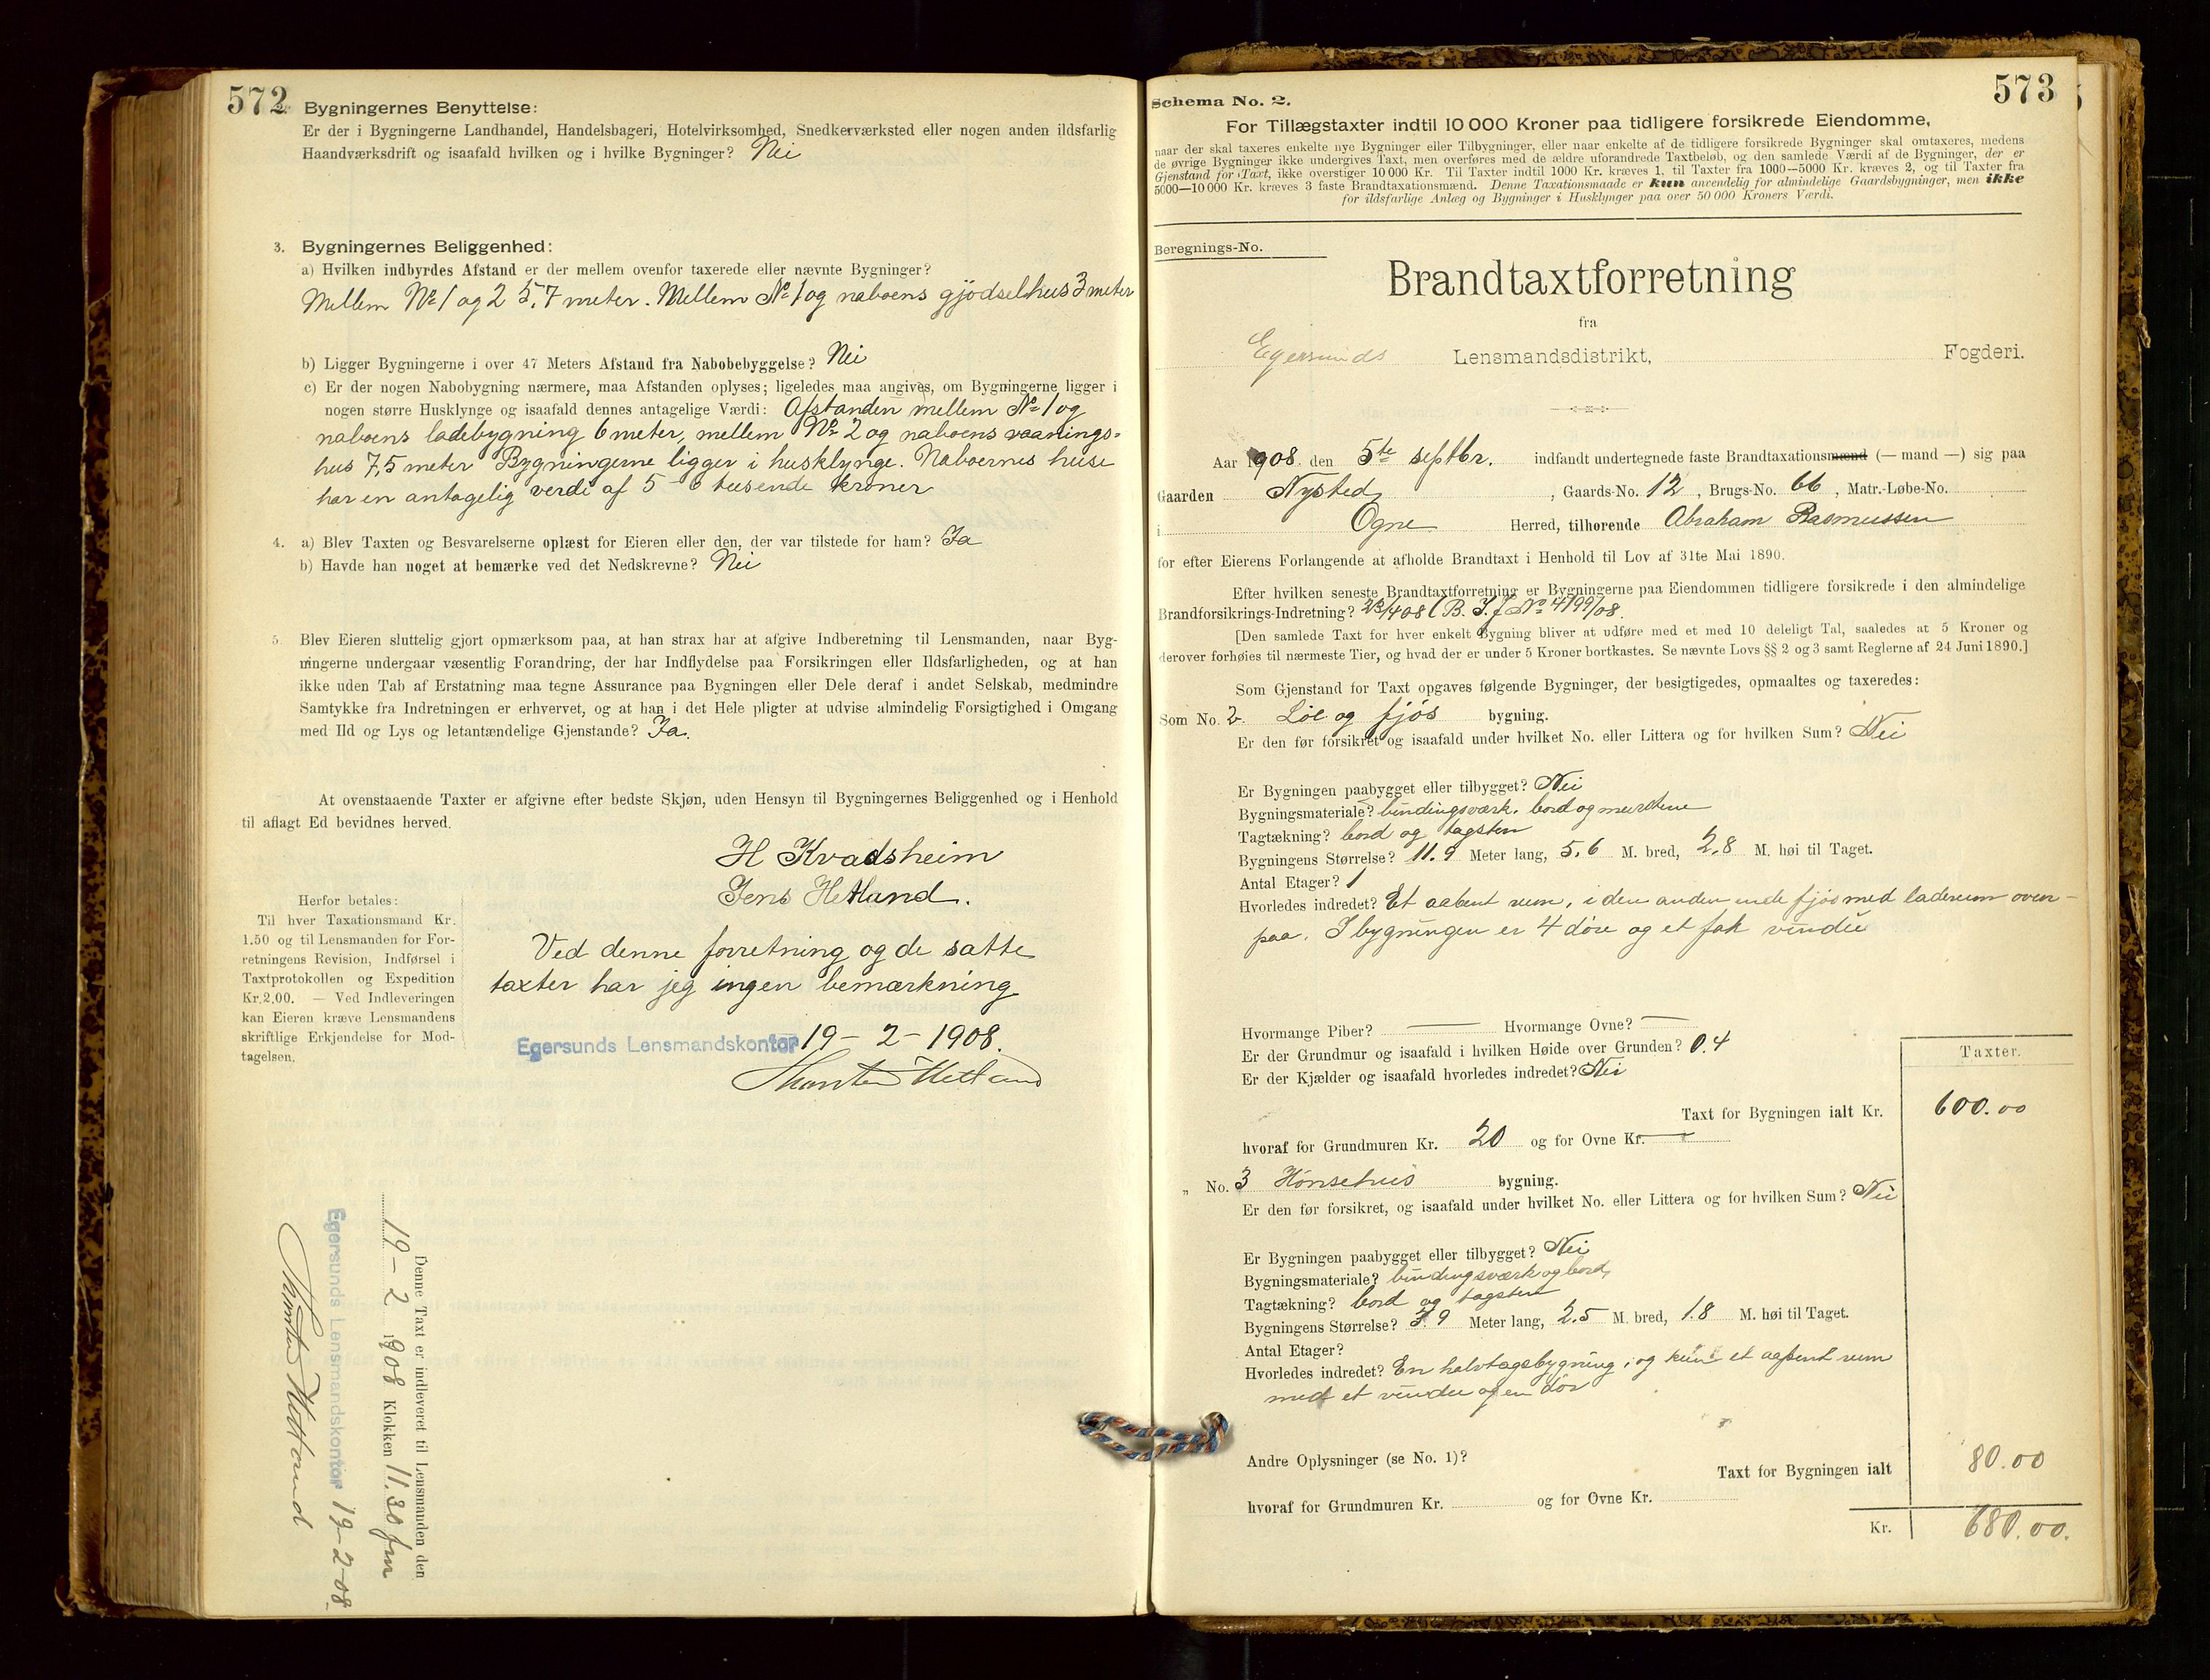 572
Bygningernes Benyttelse:
Er der i Bygningerne Landhandel, Handelsbageri, Hotelvirksomhed, Snedkerværksted eller nogen anden ildsfarlig
Haandværksdrift og isaafald hvilken og i hvilke Bygninger? Nei
3. Bygningernes Beliggenhed:
a) Hvilken indbyrdes Afstand er der mellem ovenfor taxerede eller nævnte Bygninger?
Mellem No 1 og 2 5,7 meter. Mellem No 1 og naboens gjødselhus 3 meter
b) Ligger Bygningerne i over 47 Meters Afstand fra Nabobebyggelse? Nei
c) Er der nogen Nabobygning nærmere, maa Afstanden oplyses; ligeledes maa angives, om Bygningerne ligger i
nogen større Husklynge og isaafald dennes antagelige Værdi: Afstanden mellem No 1 og
naboens ladebygning 6 meter, mellem No 2 og naboens vaanings-
hus 7,5 meter Bygningerne ligger i husklynge. Naboernes huse
har en antagelig verdi af 5-6 tusende kroner
4. a) Blev Taxten og Besvarelserne oplæst for Eieren eller den, der var tilstede for ham? Ja
b) Havde han noget at bemærke ved det Nedskrevne? Nei
5. Blev Eieren sluttelig gjort opmærksom paa, at han strax har at afgive Indberetning til Lensmanden, naar Byg-
ningerne undergaar væsentlig Forandring, der har Indflydelse paa Forsikringen eller Ildsfarligheden, og at han
ikke uden Tab af Erstatning maa tegne Assurance paa Bygningen eller Dele deraf i andet Selskab, medmindre
Samtykke fra Indretningen er erhvervet, og at han i det Hele pligter at udvise almindelig Forsigtighed i Omgang
med Ild og Lys og letantændelige Gjenstande? Ja.
At ovenstaaende Taxter er afgivne efter bedste Skjøn, uden Hensyn til Bygningernes Beliggenhed og i Henhold
til aflagt Ed bevidnes herved.
H Kvadsheim
Jens Hetland.
Herfor betales:
Til hver Taxationsmand Kr.
1.50 og til Lensmanden for For-
retningens Revision, Indførsel i
Taxtprotokollen og Expedition
Kr.2.00. — Ved Indleveringen
kan Eieren kræve Lensmandens
skriftlige Erkjendelse for Mod-
tagelsen.
Ved denne forretning og de satte
taxter har jeg ingen bemærkning
Egersunds Lensmandskontor 19-2-1908.
Thorsten Hetland
Denne Taxt er indleveret til Lensmanden den
19-2 1908 Klokken 11.30 fm
Egersunds Lensmandskontor 19-2-08.
Thorsten Hetland
573
Schema No. 2.
For Tillægstaxter indtil 10 000 Kroner paa tidligere forsikrede Eiendomme,
naar der skal taxeres enkelte nye Bygninger eller Tilbygninger, eller naar enkelte af de tidligere forsikrede Bygninger skal omtaxeres, medens
de øvrige Bygninger ikke undergives Taxt, men overføres med de ældre uforandrede Taxtbeløb, og den samlede Værdi af de Bygninger, der er
Gjenstand for Taxt, ikke overstiger 10 000 Kr. Til Taxter indtil 1000 Kr. kræves 1, til Taxter fra 1000—5000 Kr. kræves 2, og til Taxter fra
5000—10 000 Kr. kræves 3 faste Brandtaxationsmænd. Denne Taxationsmaade er kun anvendelig for almindelige Gaardsbygninger, men ikke
for ildsfarlige Anlæg og Bygninger i Husklynger paa over 50 000 Kroners Værdi.
Beregnings-No.
Brandtaxtforretning
fra
Egersunds Lensmandsdistrikt, Fogderi.
Aar 1908 den 5te septbr. indfandt undertegnede faste Brandtaxationsmænd (— mand —) sig paa
Gaarden Nysted, Gaards-No. 12, Brugs-No. 66, Matr.-Løbe-No.
i Ogne Herred, tilhørende Abraham Rasmussen
for efter Eierens Forlangende at afholde Brandtaxt i Henhold til Lov af 31te Mai 1890.
Efter hvilken seneste Brandtaxtforretning er Bygningerne paa Eiendommen tidligere forsikrede i den almindelige
Brandforsikrings-Indretning? 23/4 08 (B. J. No 4199/08.
[Den samlede Taxt for hver enkelt Bygning bliver at udføre med et med 10 deleligt Tal, saaledes at 5 Kroner og
derover forhøies til nærmeste Tier, og hvad der er under 5 Kroner bortkastes. Se nævnte Lovs §§ 2 og 3 samt Reglerne af 24 Juni 1890.]
Som Gjenstand for Taxt opgaves følgende Bygninger, der besigtigedes, opmaaltes og taxeredes:
Som No. 2. Løe og fjøs bygning.
Er den før forsikret og isaafald under hvilket No. eller Littera og for hvilken Sum? Nei
Er Bygningen paabygget eller tilbygget? Nei
Bygningsmateriale? bindingsværk, bord og murstene
Tagtækning? bord og tagsten
Bygningens Størrelse? 11.9 Meter lang, 5,6 M. bred, 2,8 M. høi til Taget.
Antal Etager? 1
Hvorledes indredet? Et aabent rum, i den anden ende fjøs med laderum oven-
paa. I bygningen er 4 døre og et fak vindu
Hvormange Piber? — Hvormange Ovne? —
Er der Grundmur og isaafald i hvilken Høide over Grunden? 0.4
Er der Kjælder og isaafald hvorledes indredet? Nei
Taxter.
Taxt for Bygningen ialt Kr. 600.00
hvoraf for Grundmuren Kr. 20 og for Ovne Kr. —
„ No. 3 Hønsehus bygning.
Er den før forsikret, og isaafald under hvilket No. eller Littera og for hvilken Sum? Nei
Er Bygningen paabygget eller tilbygget? Nei
Bygningsmateriale? bindingsværk og bord,
Tagtækning? bord og tagsten
Bygningens Størrelse? 3.9 Meter lang, 2.5 M. bred, 1.8 M. høi til Taget.
Antal Etager?
Hvorledes indredet? En halvtagsbygning, og kun et aabent rum
med et vindu og en dør
Andre Oplysninger (se No. 1)?
Taxt for Bygningen ialt 80.00
hvoraf for Grundmuren Kr. og for Ovne Kr.
Kr. 680.00.